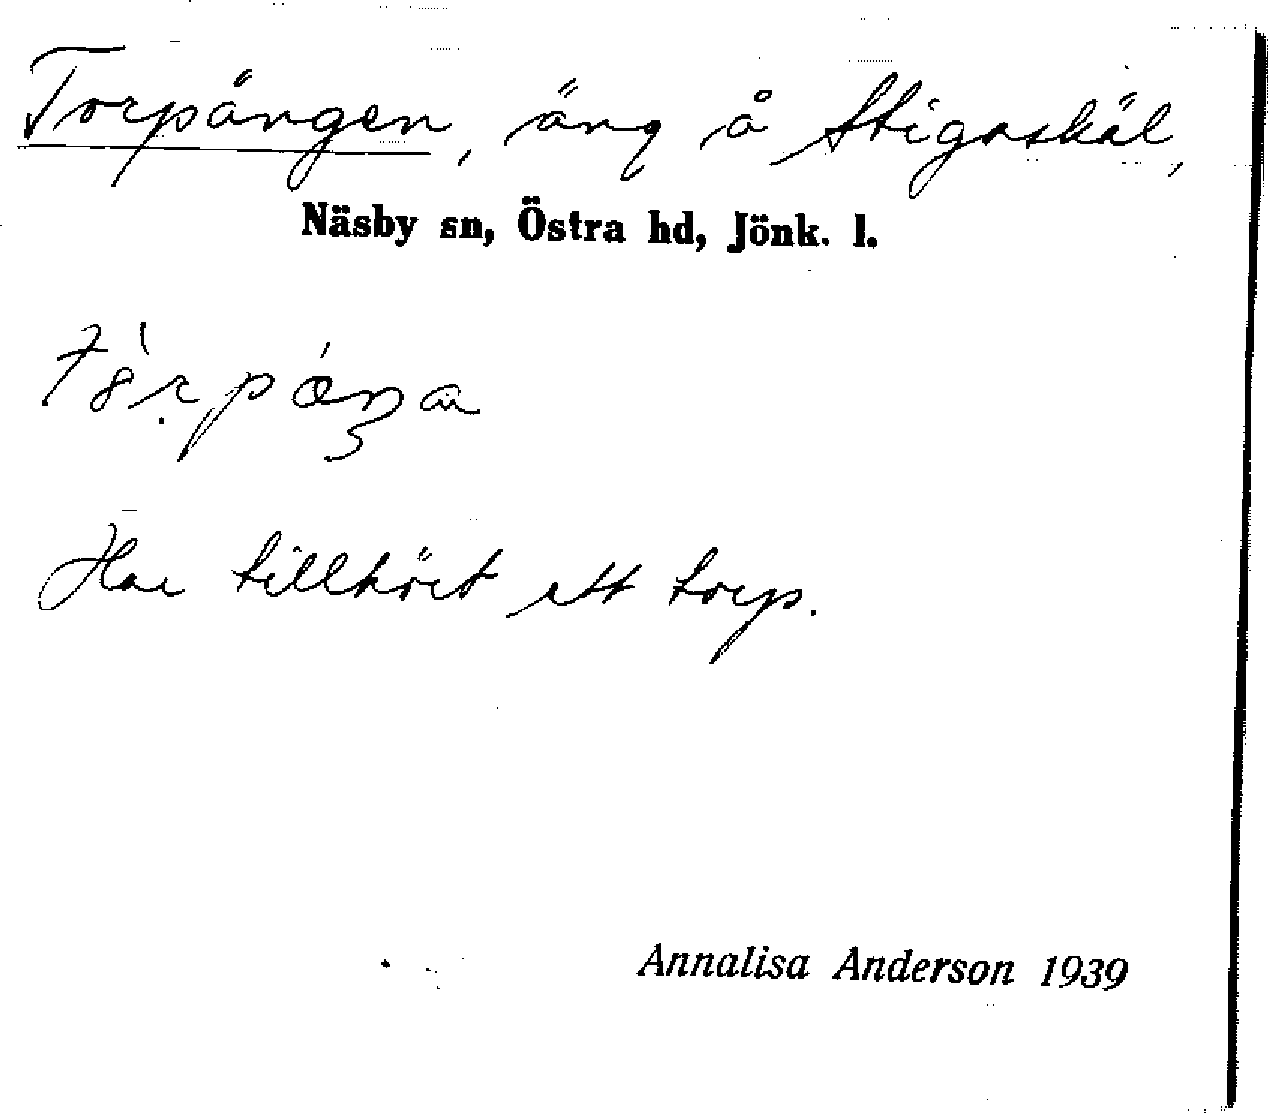 Torpängen, äng å Stigaskäl,
Näsby sn, Östra hd, Jönk. l.
Har tillhört ett torp.
Annalisa Anderson 1939